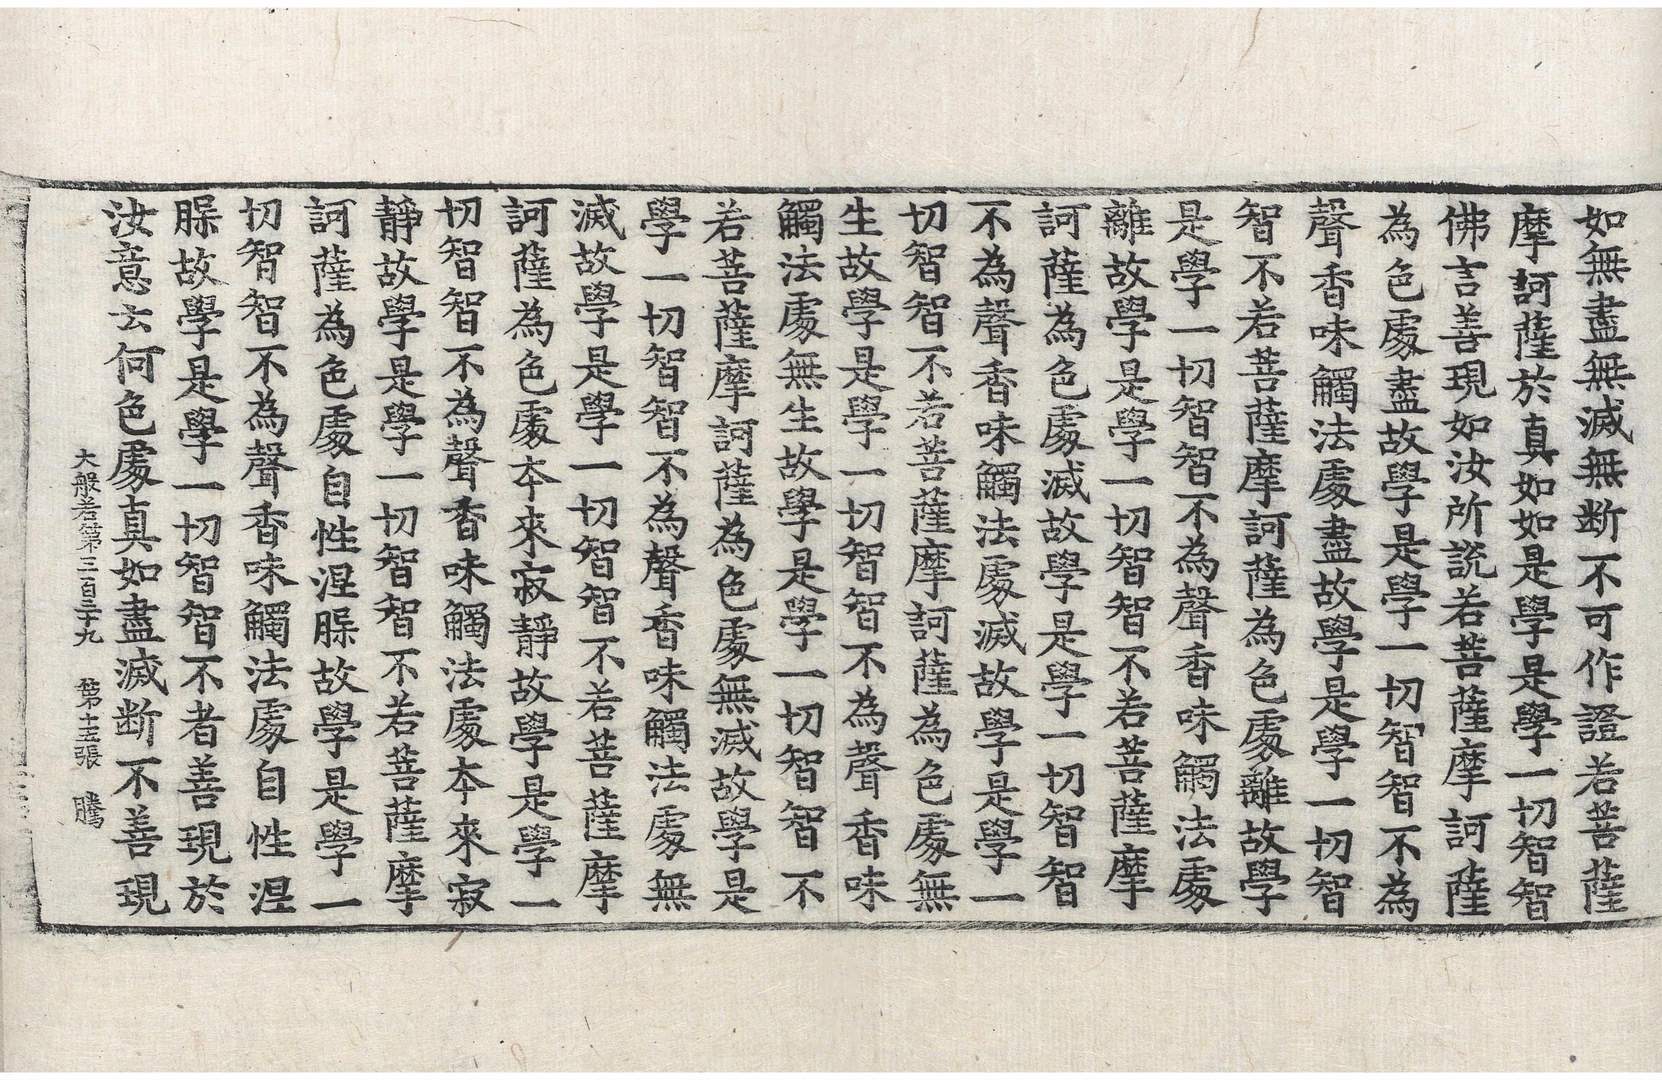 如無盡無滅無断不可作證若菩薩
摩訶薩於真如如是學是學一切智智
佛言善現如汝所說若菩薩摩訶薩
為色處盡故學是學一切智智不為
聲香味觸法處盡故學是學一切智
智不若菩薩摩訶薩為色處離故學
是學一切智智不為聲香味觸法處
離故學是學一切智智不若菩薩摩
訶薩為色處滅故學是學一切智智
不為聲香味觸法處滅故學是學一
切智智不若菩薩摩訶薩為色處無
生故學是學一切智智不為聲香味
觸法處無生故學是學一切智智不
若菩薩摩訶薩為色處無滅故學是
學一切智智不為聲香味觸法處無
滅故學是學一切智智不若菩薩摩
訶薩為色處本來寂靜故學是學一
切智智不為聲香味觸法處本來寂
靜故學是學一切智智不若菩薩摩
訶薩為色處自性涅槃故學是學一
切智智不為聲香味觸法處自性涅
槃故學是學一切智智不者善現於
汝意云何色處真如盡滅断不善現
大般若第三百三十九 第十五張 騰